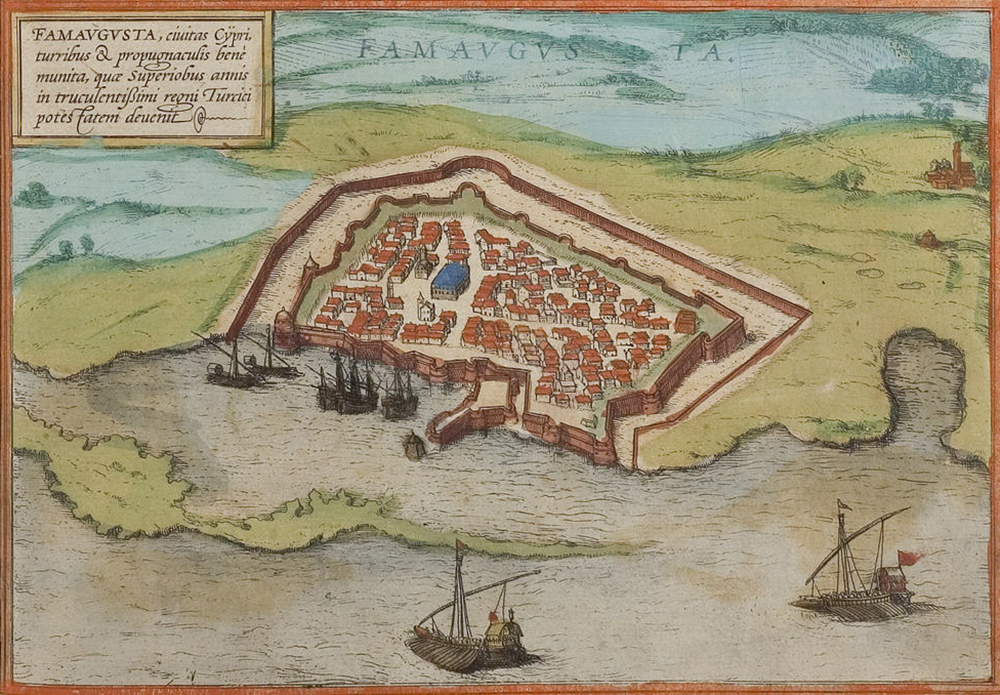 FAMAVGVSTA, ciuitas Cÿpri,
turribus & propugnaculis benè
munita, quæ Superiobus annis
in truculentißimi regni Turcici
potes tatem deuenit
FAMAVGVSTA.